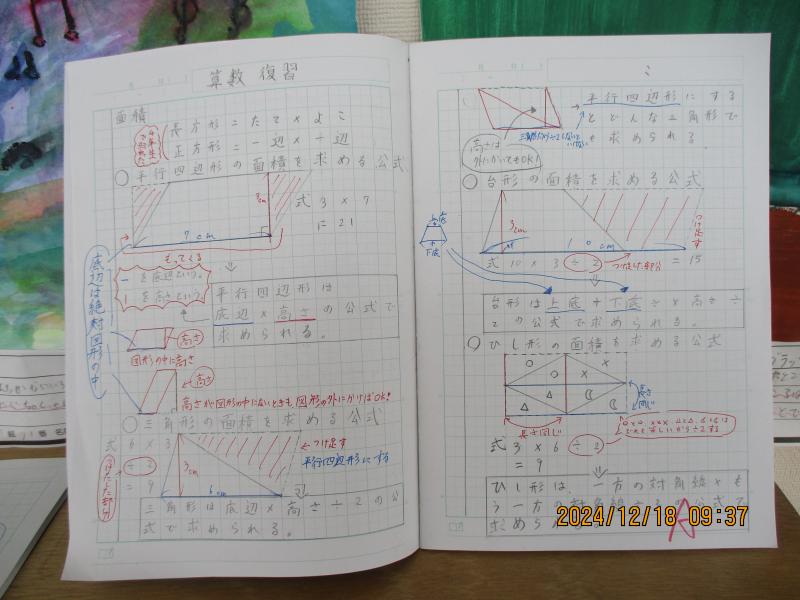 算数 復習
面積
4年生で習った
長方形=たて×よこ
正方形=一辺×一辺
○平行四辺形の面積を求める公式
3cm
7cm
式 3×7
=21
もってくる
底辺は絶対図形の中
一を底辺という。
｜を高さという。
平行四辺形は
底辺×高さの公式で
求められる。
高さ
図形の中に高さ
高さ
高さが図形の中にないときも図形の外にかけばOK!
○三角形の面積を求める公式
式 6×3
÷2
=9
3cm
6cm
←つけ足す
平行四辺形にする
三角形は底辺×高さ÷2の公
式で求められる。
平行四辺形にする
とどんな三角形で
も求められる。
高さは
外にかいてもOK!
○台形の面積を求める公式
上底
下底
3cm
10cm
つけ足す
式 10×3÷2
=15
つけ足した部分
台形は上底+下底
×高さ÷
2の公式で求められる。
○ひし形の面積を求める公式
長さ同じ
長さ同じ
式 3×6÷2
=9
ひし形は、一方の対角線×も
う一方の対角線÷2の公式で
求めら
A
2024/12/18 09:37